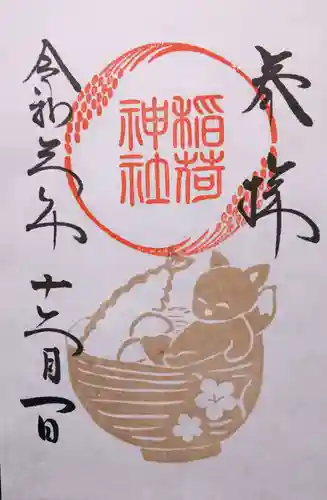 奉拝
稲荷
神社
令和六年十二月一日